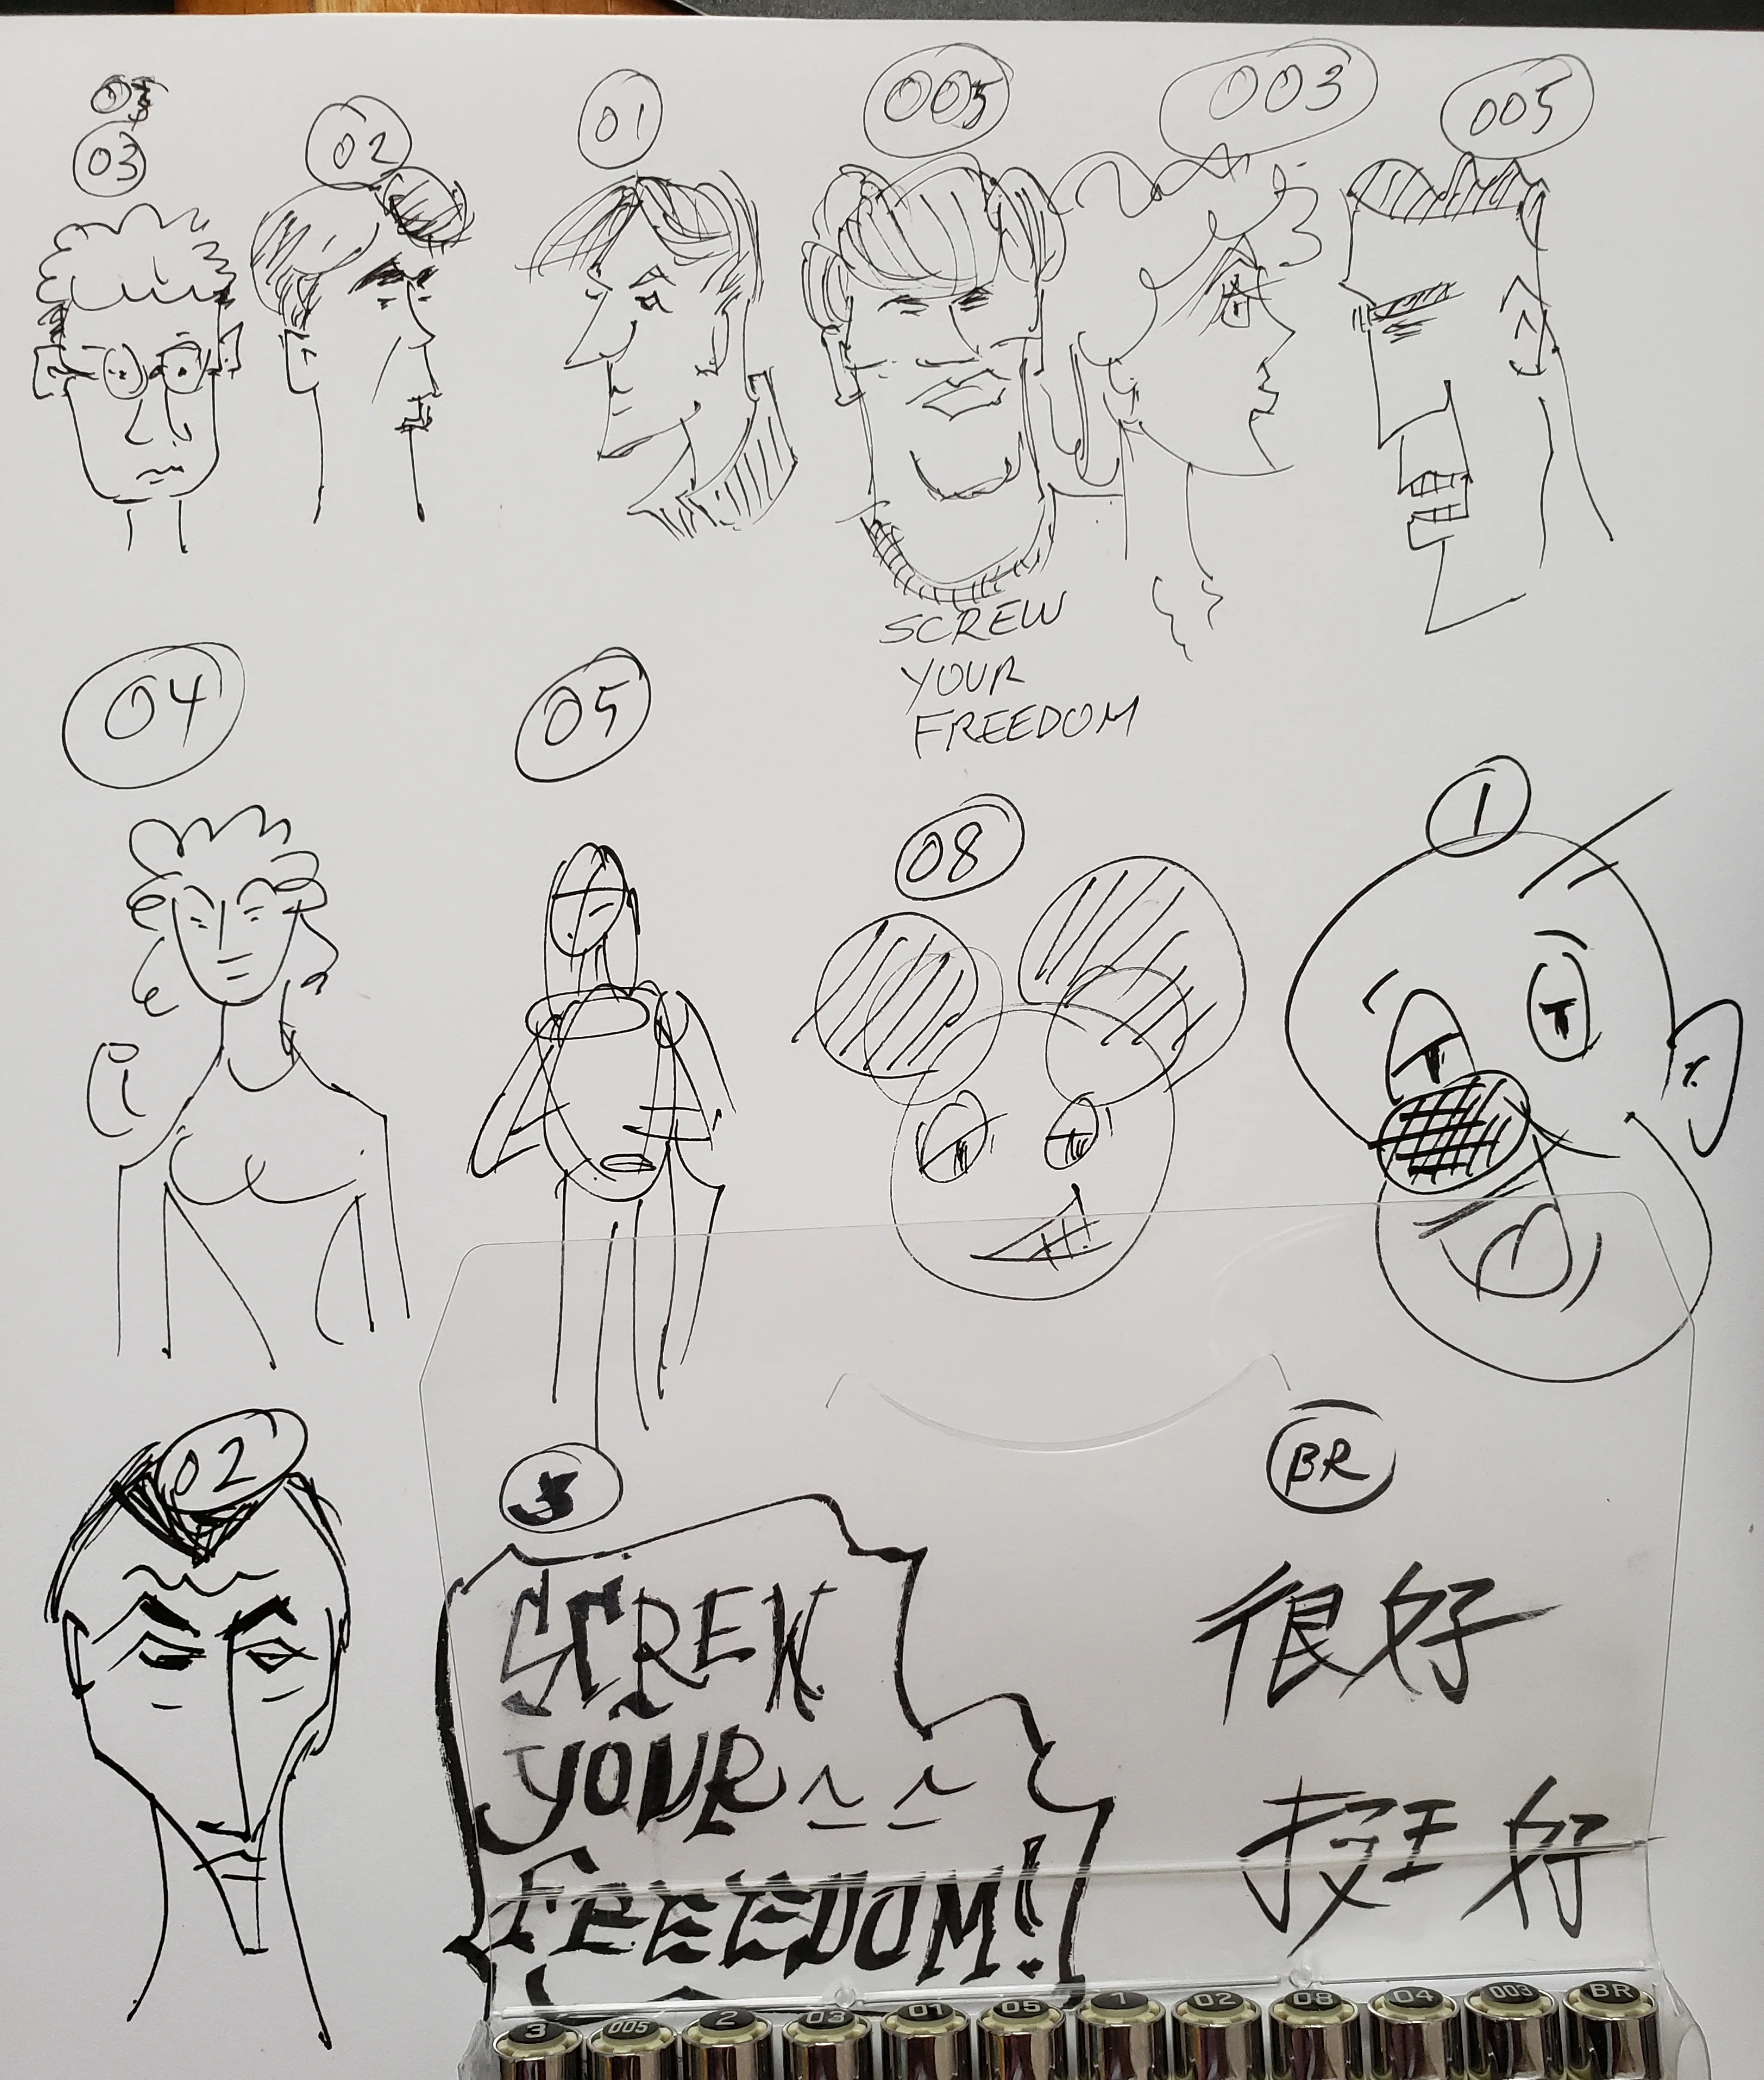 03
02
01
005
003
005
SCREW
YOUR
FREEDOM
04
05
08
1
02
BR
SCREW
YOUR
FREEDOM!
很好
挺好
3
005
2
03
01
05
1
02
08
04
003
BR